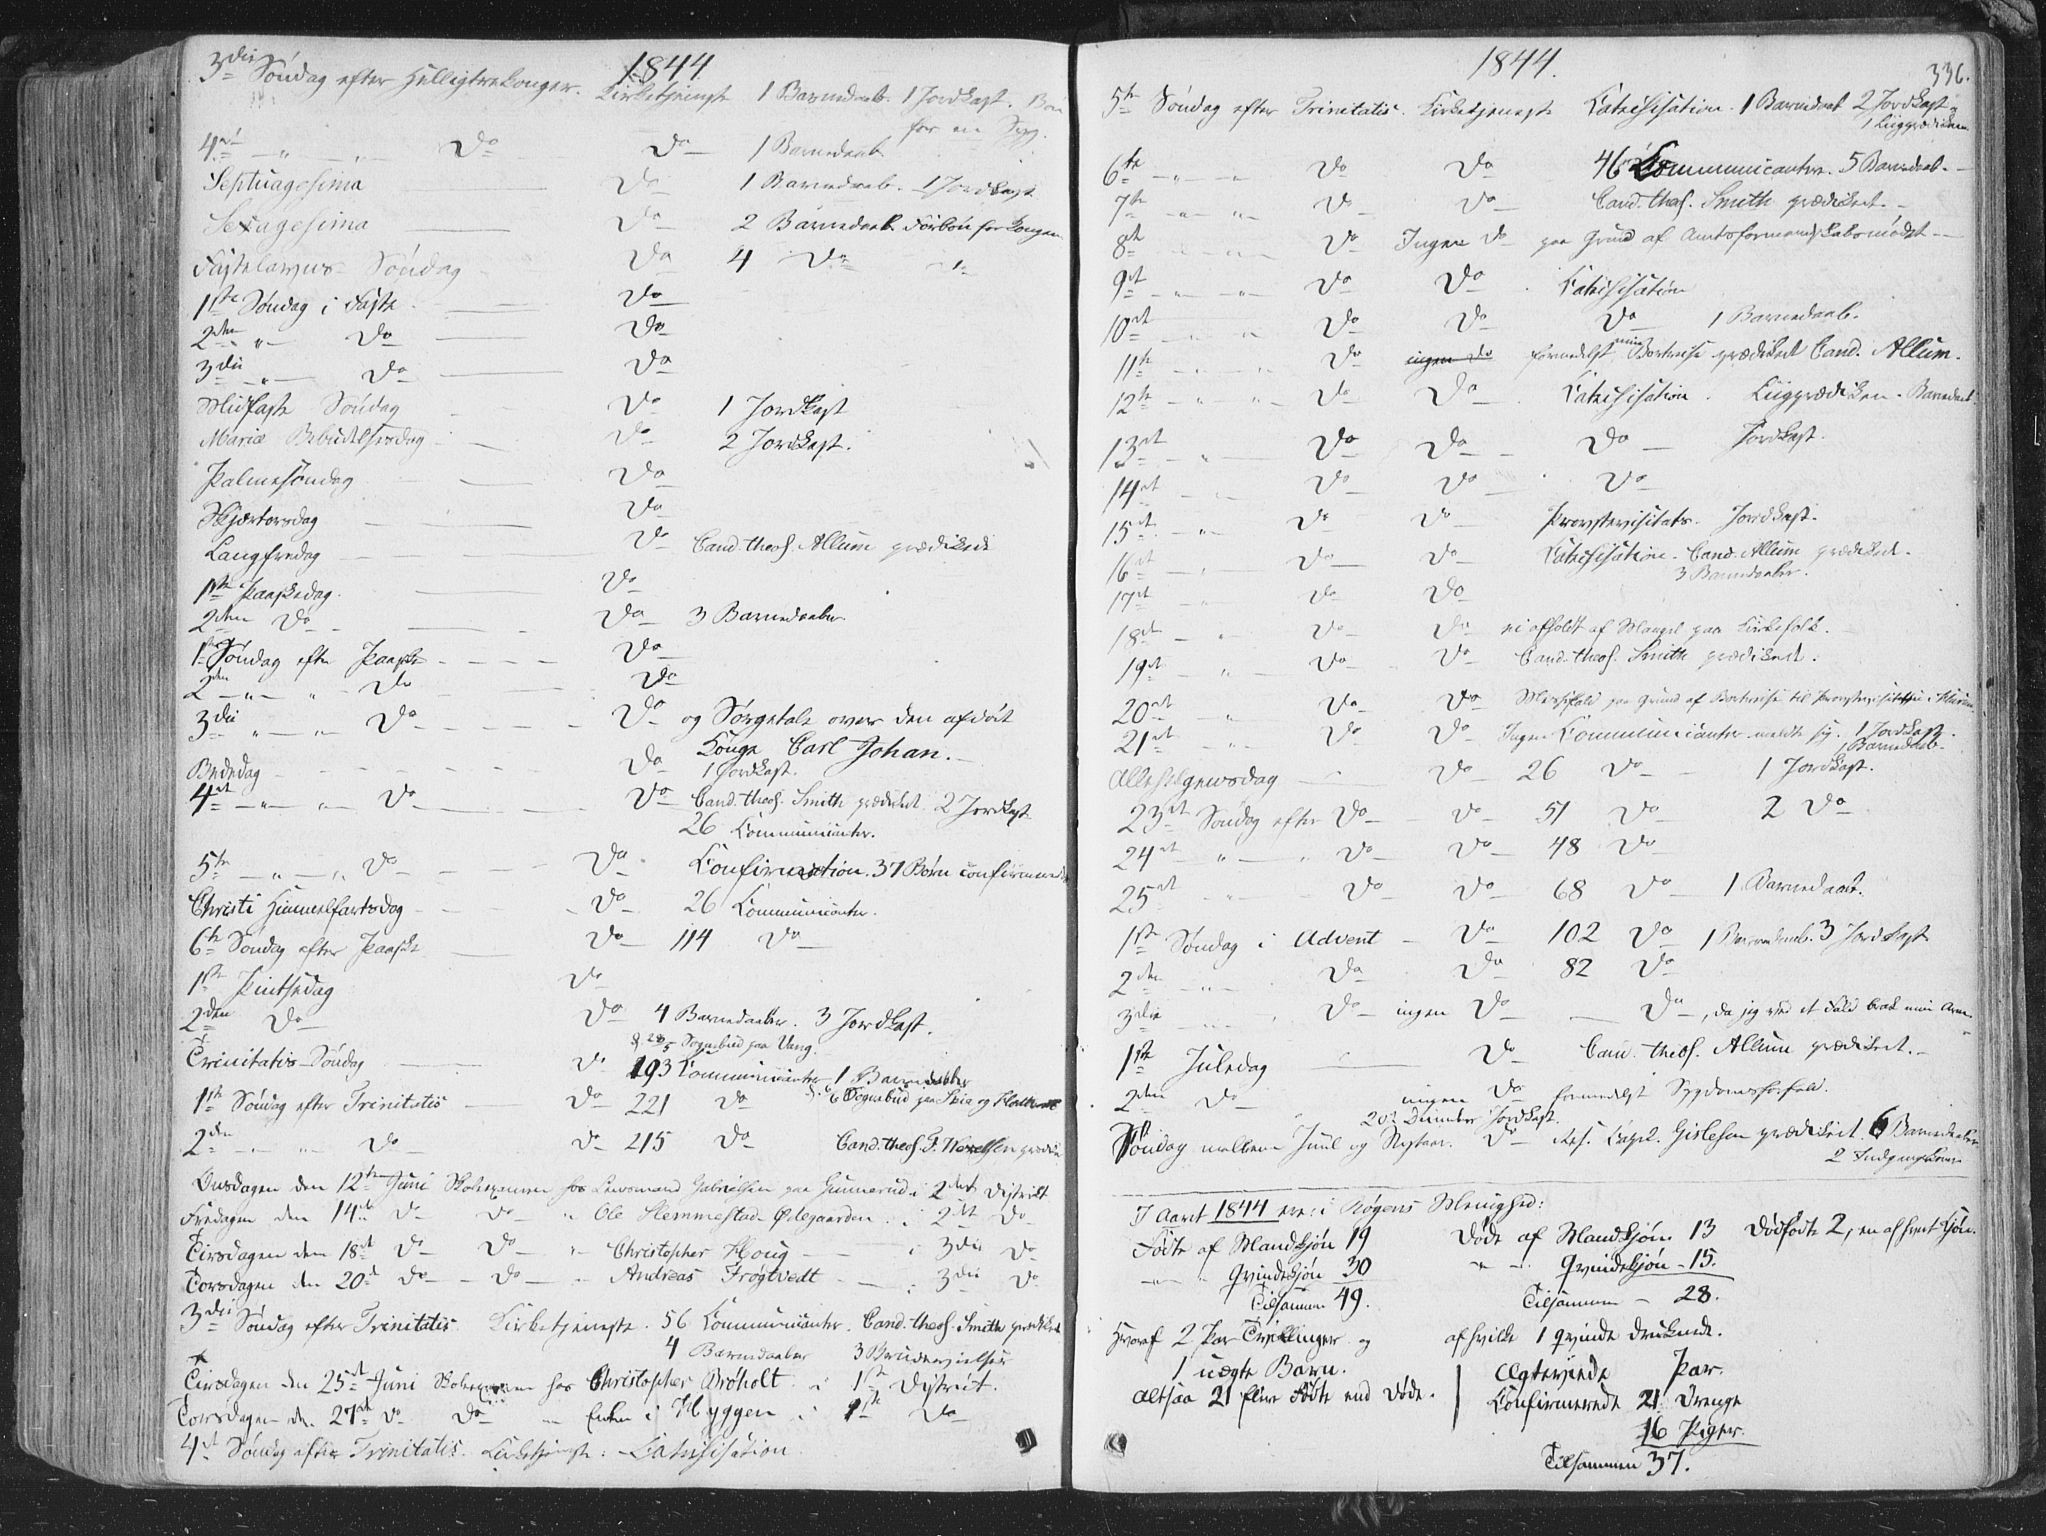 1844
3die Søndag efter Helligtrekonger. Kirketjeneste 1 Barnedaab. 1 Jordkast. Bøn
for en Syg.
4de — " — " — Do — Do — 1 Barnedaab
Septuagesima — Do — 1 Barnedaab. 1 Jordkast
Sexagesima — Do — 2 Barnedaab Forbøn for Kongen
Fastelavns Søndag — Do 4 Do
1ste Søndag i Faste — Do
2den " — Do — Do
3die " — Do — Do
Midfaste Søndag — Do 1 Jordkast
Mariæ Bebudelsesdag — Do 2 Jordkast.
Palmesøndag — Do
Skjærtorsdag — Do
Langfredag — Do Cand. theol. Allum prædikede
1ste Paaskedag — Do
2den Do — Do 3 Barnedaaber
1ste Søndag efter Paaske — Do
2den — " — " — Do — Do
3die — " — " — Do — Do og Sørgetale over den afdøde
Konge Carl Johan.
Bededag — Do 1 Jordkast.
4de — " — " — Do — Do Cand. theol. Smith prædikede. 2 Jordkast
26 Communicanter.
5te — " — " Do — Do Confirmation. 37 Børn confirmerede
Christi Himmelfartsdag — Do 26 Communicanter.
6te Søndag efter Paaske — Do 114 Do
1ste Pintsedag — Do
2den Do — Do 4 Barnedaaber. 3 Jordkast.
d. 28/5 Sognebud paa Vang.
Trinitatis-Søndag — Do 193 Communicanter 1 Barnedaab
1ste Søndag efter Trinitatis — Do 221 Do d. 6/6 Sognebud paa
2den — " — " Do — Do 215 Do Cand. theol. F. Wexelsen prædik.
Onsdagen den 12te Juni Skoleexamen hos Lensmand Gabrielsen paa Gunnerud i 2det District
Fredagen den 14de Do — Do — " Ole Hemmestad-Ødegaarden i 2det Do
Tirsdagen den 18de Do — Do — " Christopher Houg — i 3die Do
Torsdagen den 20de Do — Do — " Andreas Frøgtvedt — i 3die Do
3die Søndag efter Trinitatis Kirketjeneste. 56 Communicanter. Cand. theol. Smith prædikede
4 Barnedaaber 3 Brudevielser
Tirsdagen den 25de Juni Skoleexamen hos Christopher Brøholt i 1ste District.
Torsdagen d. 27de Do Do — Enken i Hyggen i 1ste Do
4de Søndag efter Trinitatis. Kirketjeneste: Catechisation
1844.
336.
5te Søndag efter Trinitatis. Kirketjeneste Catechisation. 1 Barnedaab 2 Jordkast
1 Liigprædiken
6te — " — " Do Do 46 Communicanter. 5 Barnedaab.
7de — " — " Do Do Cand. theol. Smith prædikede.
8de Do Ingen Do paa Grund af Amtsformandskabsmødet
9de — " — " Do Do Catechisation
10de Do Do Do 1 Barnedaab.
11te Do ingen Do formedelst min Bortreise prædikede Cand. Allum.
12te — " — " Do Do Catechisation. Liigprædiken. Barnedaab.
13de — " Do Do Do — Jordkast.
14de — " Do Do Do
15de " Do Do Provstevisitats. Jordkast.
16de — " Do Do Catechisation. Cand. Allum prædikede.
3 Barnedaaber.
17de " Do Do
18de — " Do Do ei afholdt af Mangel paa Kirkefolk.
19de " Do Do Cand. theol. Smith prædikede.
20de " Do Do Messefald paa Grund af Bortreise til Provstevisitats i
21de " Do Do Ingen Communicanter meldte sig. 1 Jordkast.
1 Barnedaab.
Allehelgensdag — Do 26 Do 1 Jordkast.
23de Søndag efter Do Do 51 Do 2 Do
24de " — " Do Do 48 Do
25de " Do Do 68 Do 1 Barnedaab.
1ste Søndag i Advent — Do 102 Do 1 Barnedaab. 3 Jordkast
2den — " Do Do 82 Do
3die — " Do ingen Do — Do, da jeg ved et Fald brak min Arm
1ste Juledag — Do Cand. theol. Allum prædikede.
2den Do — ingen Do formedelst Sygdomsforfald.
20de December Jordkast.
Søndag mellem Juul og Nytaar. Do Res. Capel. Gislesen prædikede. 6 Barnedaaber
2 Indgangskoner
I Aaret 1844 ere: i Røgens Menighed:
Fødte af Mandkjøn 19 Døde af Mandkjøn 13 Dødfødte 2, en af hvert Kjøn.
— " — Qvindekjøn 30 " — Qvindekjøn — 15.
Tilsammen 49. Tilsammen — 28.
Hvoraf 2 Par Tvillinger og af hvilke 1 Qvinde druknede.
1 uægte Barn. Ægteviede Par.
altsaa 21 flere Fødte end Døde. Confirmerede 21 Drenge
16 Piger.
Tilsammen 37.